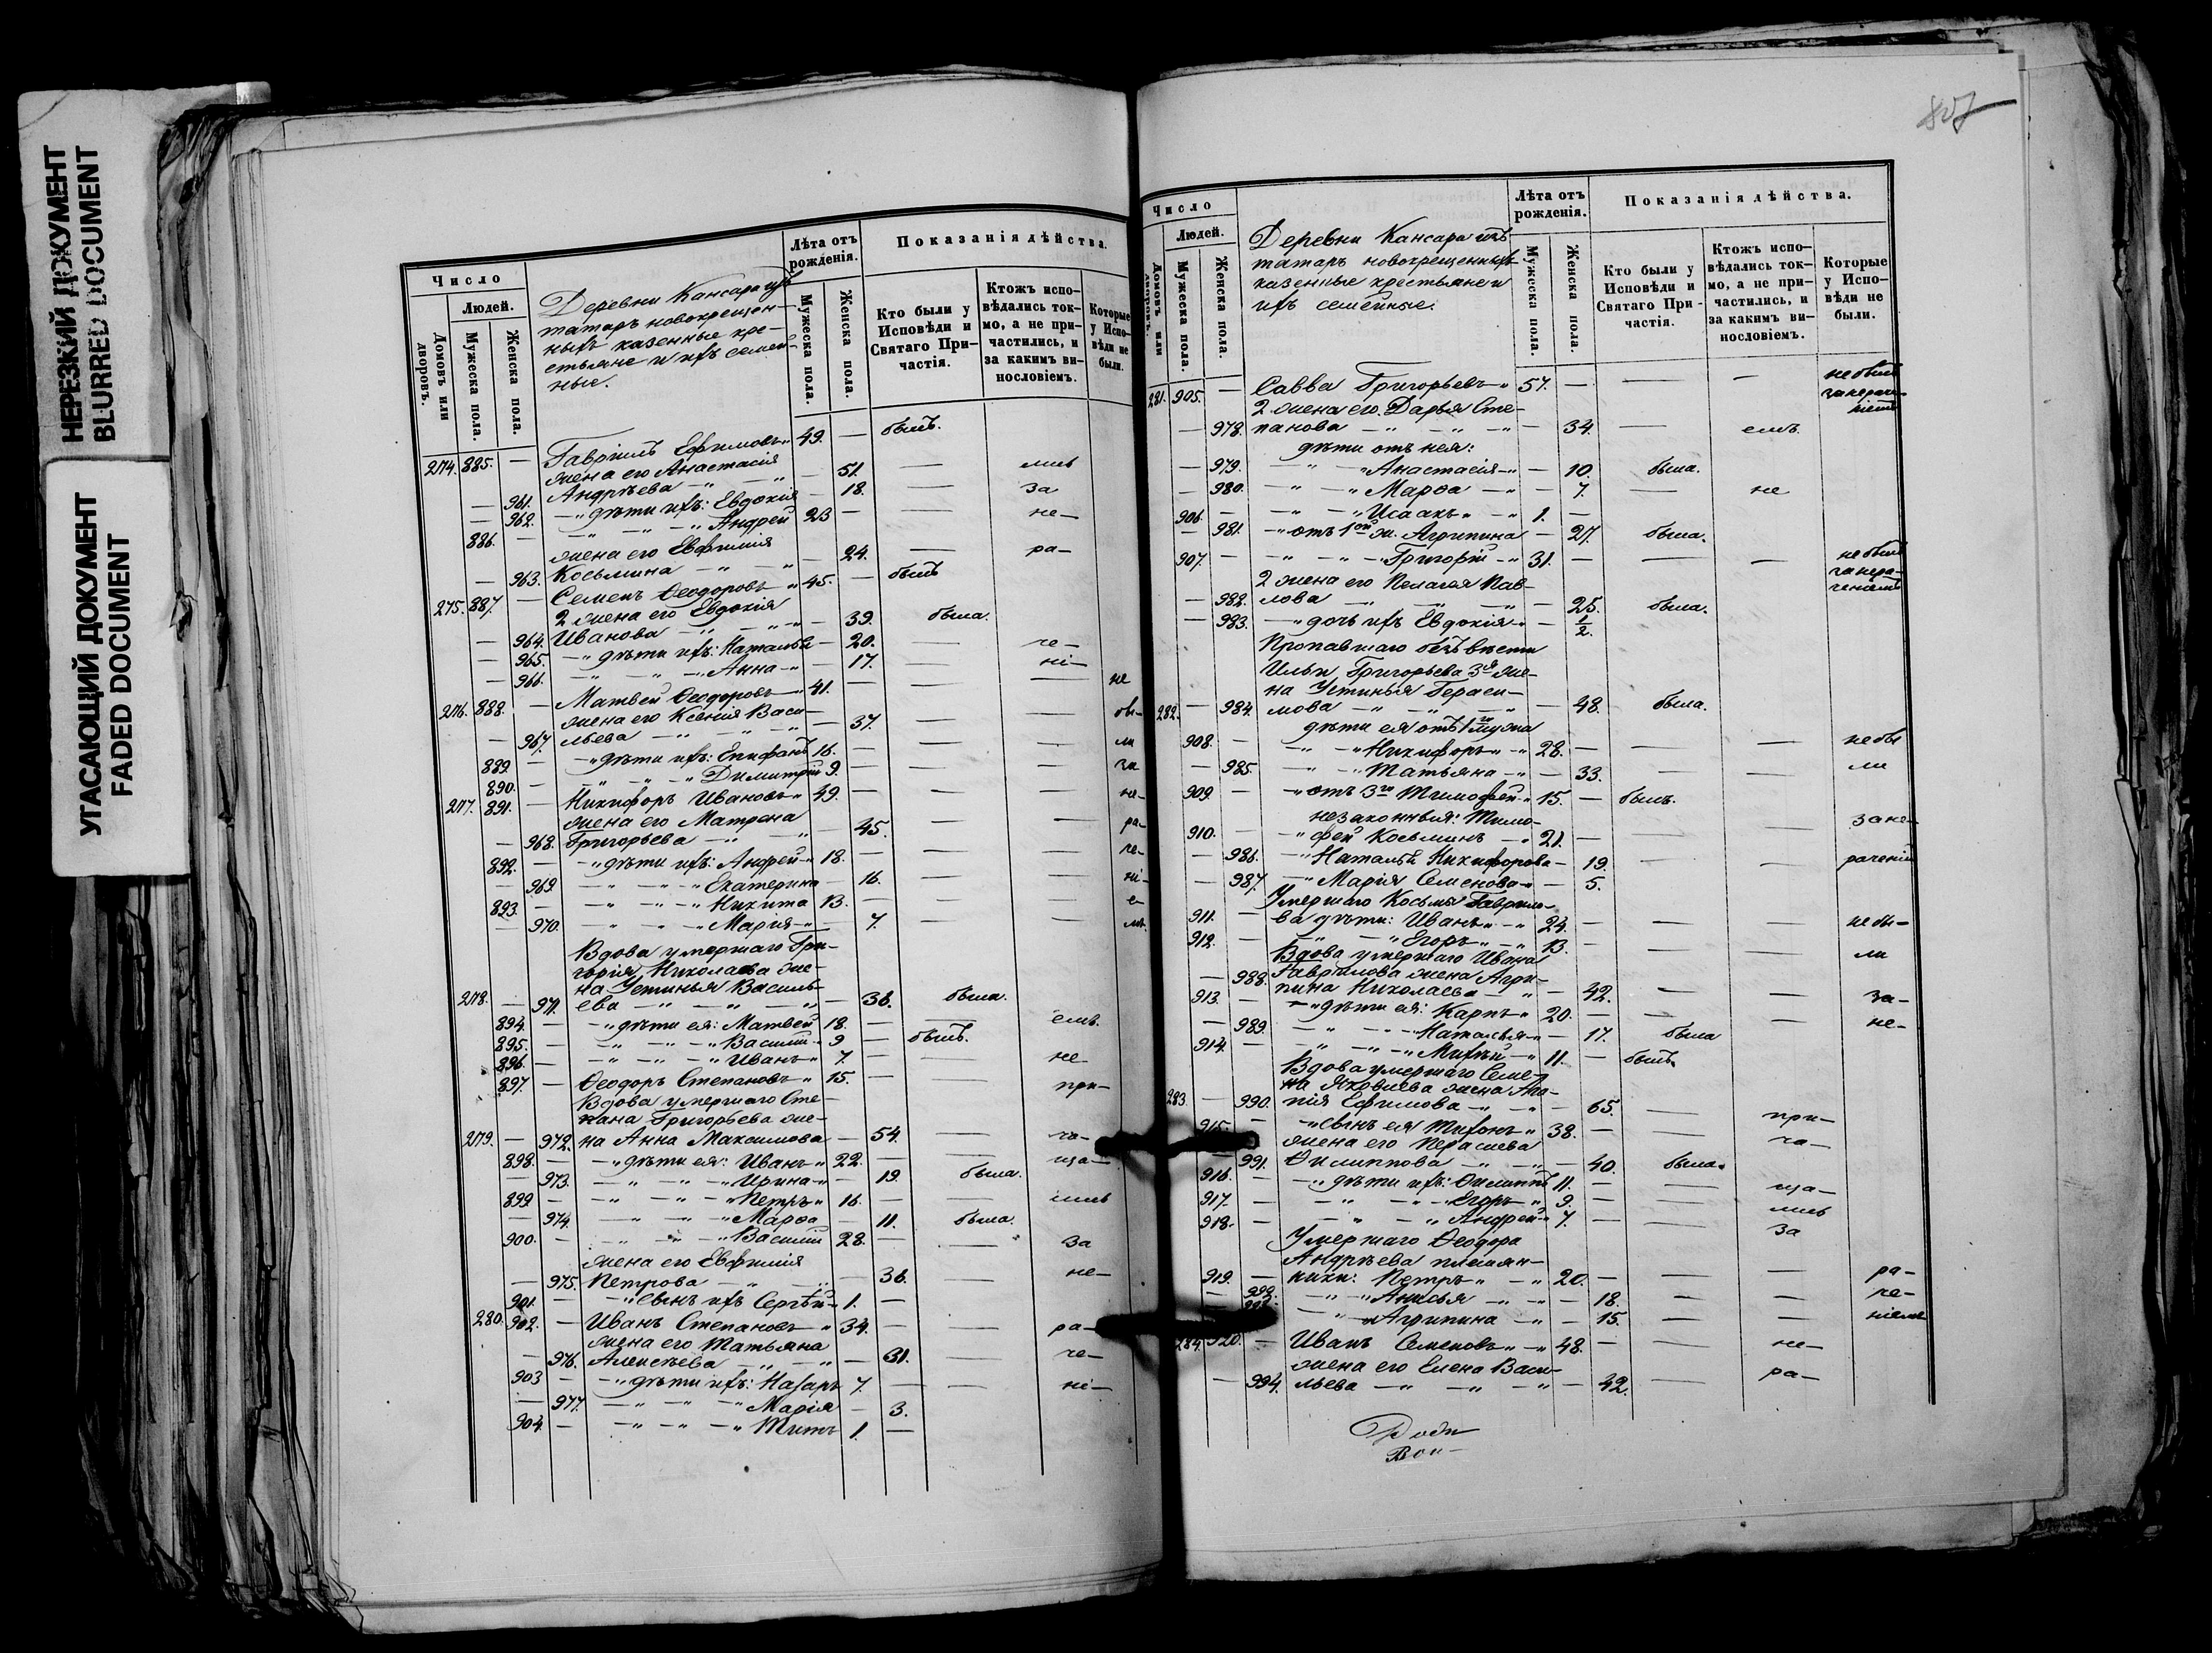 НЕРЕЗКИЙ ДОКУМЕНТ
BLURRED DOCUMENT
УГАСАЮЩИЙ ДОКУМЕНТ
FADED DOCUMENT
Число
Людей.
Домовъ или дворовъ.
Мужеска пола.
Женска пола.
Деревни Кансара изъ
татаръ новокрещен-
ныхъ казенные кре-
стьяне и ихъ семей-
ные.
Лѣта отъ рожденія.
Мужеска пола.
Женска пола.
Показанія дѣйства.
Кто были у Исповѣди и Святаго При-частія.
Ктожъ испо-вѣдались ток-мо, а не при-частились, и за какимъ ви-нословіемъ.
Которые у Испо-вѣди не были.
274. 885. — Гавріилъ Ефимовъ " 49. — былъ.
жена его Анастасія
— 961. Андрѣева — " — " — 51. — лись
— 962. — " дѣти ихъ: Евдокія — 18. — за
886. — — " — " Андрей 23 — — не-
жена его Евфимія
— 963. Косьмина — " — " — 24. — ра-
275. 887. — Семенъ Ѳеодоровъ " 45. — былъ
2 жена его Евдокія
— 964. Иванова — " — " — 39. была.
— 965. — " дѣти ихъ: Наталья — 20. — че-
— 966. — " — " Анна — " — 17. — ні-
276. 888. — Матвей Ѳеодоровъ — " 41. — — — не
жена его Ксенія Васи-
— 967. льева — " — " — 37. — — бы-
889. — — " дѣти ихъ: Епифанъ 16. — — — ли
890. — — " — " Димитрій 9. — — — за
277. 891. — Никифоръ Ивановъ " 49. — — — не-
жена его Матрена
— 968. Григорьева — " — " — 45. — — ра-
892. — — " дѣти ихъ: Андрей — " 18. — — — че-
— 969. — " — " Екатерина — 16. — — ні-
893. — — " — " Никита 13. — — — е-
— 970. — " — " Марія — " — 7. — — мъ.
Вдова умершаго Гри-
горія Николаева же-
на Устинья Василь-
278. — 971. ева — " — " — " — 36. была.
894. — — " дѣти ея: Матвей 18. — — емъ.
895. — — " — " Василій " 9 — былъ.
896. — — " — " Иванъ " 7. — — не-
897. — Ѳеодоръ Степановъ " 15. — — при-
Вдова умершаго Сте-
пана Григорьева же-
279. — 972. на Анна Максимова — 54. — ча-
898. — — " дѣти ея: Иванъ " 22. — — ща-
— 973. — " — " Ирина — " — 19. была.
899. — — " — " Петръ " 16. — — лись
— 974. — " — " Марѳа — 11. была.
900. — — " — " Василій 28. — — за
жена его Евфимія
— 975. Петрова — " — " — 36. — не-
901. — — " сынъ ихъ Сергѣй — 1. —
280. 902. — Иванъ Степановъ — " 34. — — ра-
жена его Татьяна
— 976. Алексѣева — " — " — 31. — че-
903 — — " дѣти ихъ: Назаръ 7. — — ні-
— 977. — " — " Марія — 3.
904. — — " — " — " Титъ 1. —
807
Число
Людей.
Домовъ или дворовъ.
Мужеска пола.
Женска пола.
Деревни Кансара изъ
татаръ новокрещенныхъ
казенные крестьяне и
ихъ семейные.
Лѣта отъ рожденія.
Мужеска пола.
Женска пола.
Показанія дѣйства.
Кто были у Исповѣди и Святаго При-частія.
Ктожъ испо-вѣдались ток-мо, а не при-частились, и за какимъ ви-нословіемъ.
Которые у Испо-вѣди не были.
281. 905. — Савва Григорьевъ " 57. — — — не былъ
2 жена его Дарья Сте- за нерачені-
— 978. панова — " — " — " — 34. — емъ
дѣти отъ нея:
— 979. — " — " Анастасія — " — 10. была.
— 980. — " — " Марѳа — " — 7. — не
906. — — " — " Исаакъ " — " 1. —
— 981. — " отъ 1ой ж. Агрипина — 27. была.
907. — — " — " Григорій — " 31. — — — не былъ
2 жена его Пелагея Пав- за нера-
— 982. лова — " — " — " — 25. была. ченіемъ
— 983. — " дочь ихъ Евдокія " — 1/2.
Пропавшаго безъ вѣсти
Ильи Григорьева 3я же-
на Устинья Гераси-
282. — 984. мова — " — " — " — 48. была.
дѣти ея отъ 1го мужа
908. — — " Никифоръ " — " 28. — — — не бы
— 985. — " — " Татьяна — " — 33. — — ли
909. — — " отъ 3го Тимофей " 15. — былъ.
незаконныя: Тимо- за не-
910. — — " фей Косьминъ — " 21. —
— 986. — " Наталья Никифорова — 19. — — раченіе
— 987. — " Марія Семенова — " — 5.
Умершаго Косьмы Гаврило-
911. — ва дѣти: Иванъ " — " 24. — — — не бы-
912. — — " — " Егоръ " — " 13. — — — ли
Вдова умершаго Ивана
— 988. Гаврилова жена Агри-
пина Николаева — " — 42. — — за-
913. — — " дѣти ея: Карпъ " 20. — — — не-
— 989. — " — " Наталья — " — 17. была
914. — — " — " Михѣй — " 11. — былъ.
Вдова умершаго Семе-
на Яковлева жена Ага-
283. — 990. пія Ефимова — " — " — 65. — при-
915. — — " сынъ ея Тихонъ " 38. — — ча-
жена его Перасиева
— 991. Филиппова — " — " — 40. была.
916. — — " дѣти ихъ: Филиппъ 11. — — ща-
917. — — " — " Егоръ — " 9. — — лись
918. — — " — " Андрей " 7. — — за
Умершаго Ѳеодора
Андрѣева племян-
919. — ники: Петръ " — " 20. — — — ра-
— 992. — " — " Анисья — " — " — 18. — — че-
— 993. — " Агрипина — " — 15. — — ніемъ
284. 920. — Иванъ Семеновъ " — " 48. — — не-
жена его Елена Васи-
— 994. льева — " — " — " — 42. — ра-